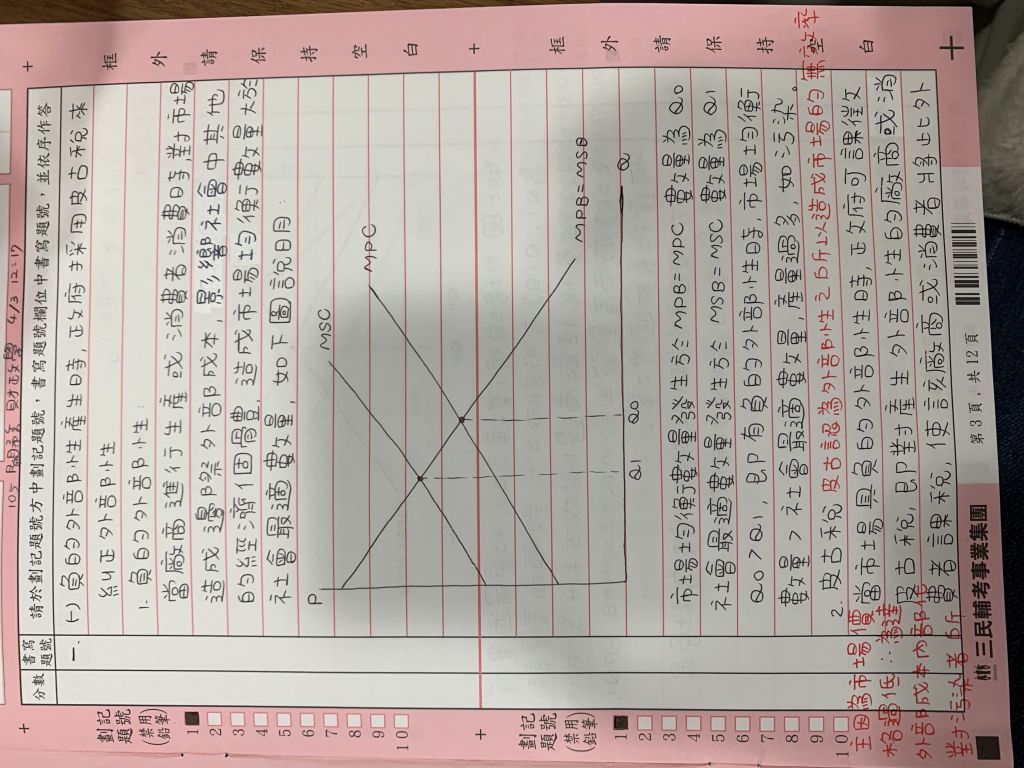 105 關務 財政學 4/3 12:17
請於劃記題號方中劃記題號，書寫題號欄位中書寫題號，並依序作答
分數
書寫題號
一.
(一) 負的外部性產生時,政府採用皮古稅來
糾正外部性
1. 負的外部性:
當廠商進行生產或消費者消費時,對市場
造成邊際外部成本,影響社會中其他
的經濟個體,造成市場均衡數量大於
社會最適數量,如下圖說明:
P
MSC
MPC
MPB=MSB
Q1
Q0
Q
市場均衡數量發生於MPB=MPC 數量為Q0
社會最適數量發生於 MSB=MSC 數量為Q1
Q0>Q1,即有負的外部性時,市場均衡
數量>社會最適數量,產量過多,如污染。
2. 皮古稅 皮古認為外部性之所以造成市場的無效率
當市場具負的外部性時,政府可課徵
皮古稅,即對產生外部性的廠商或消
費者課稅,使該廠商或消費者將此外
主因為市場價
格過低∴為達
外部成本內部化
對污染者所
框外請保持空白
框外請保持空白
劃記題號
(禁用鉛筆)
1
2
3
4
5
6
7
8
9
10
劃記題號
(禁用鉛筆)
1
2
3
4
5
6
7
8
9
10
三民輔考事業集團
第 3 頁，共 12 頁